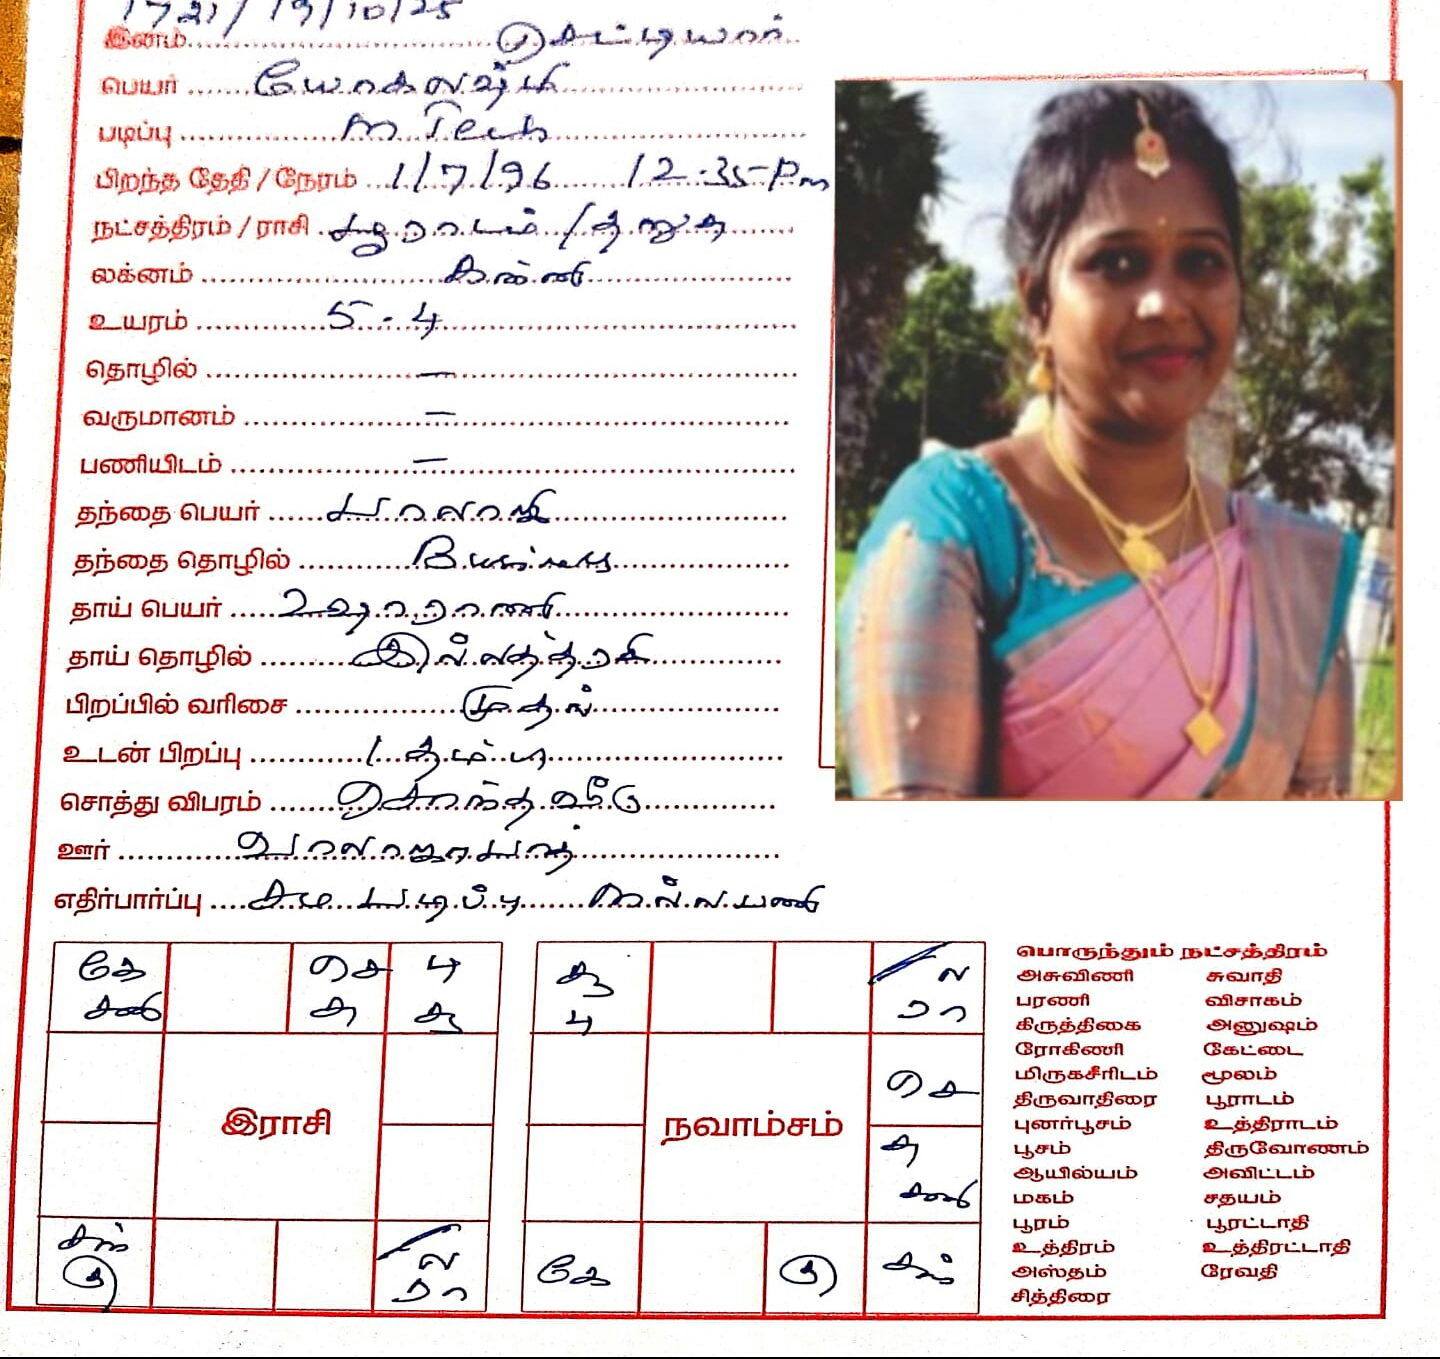 1721/19/10/25
இனம் ........ செட்டியார்
பெயர் ....... யோகலஷ்மி
படிப்பு ........ M Tech
பிறந்த தேதி / நேரம் ... 1/7/96 ...... 12.35-Pm
நட்சத்திரம் / ராசி .. பூராடம் / தனுசு
லக்னம் ........ கன்னி
உயரம் ........ 5-4
தொழில் ........ —
வருமானம் ........ —
பணியிடம் ........ —
தந்தை பெயர் ...... பாலாஜி
தந்தை தொழில் ........ Business
தாய் பெயர் ..... உஷாராணி
தாய் தொழில் ........ இல்லத்தரசி
பிறப்பில் வரிசை ........ முதல்
உடன் பிறப்பு ........ 1 தம்பி
சொத்து விபரம் ...... சொந்த வீடு
ஊர் ........ வாலாஜாபாத்
எதிர்பார்ப்பு .... சம படிப்பு ....... நல்ல பணி
கே செ பு சூ பு ல
சனி சு சூ ரா
இராசி நவாம்சம் செ
சு
சனி
சந் ல கே கு சந்
கு ரா
பொருந்தும் நட்சத்திரம்
அசுவிணி சுவாதி
பரணி விசாகம்
கிருத்திகை அனுஷம்
ரோகிணி கேட்டை
மிருகசீரிடம் மூலம்
திருவாதிரை பூராடம்
புனர்பூசம் உத்திராடம்
பூசம் திருவோணம்
ஆயில்யம் அவிட்டம்
மகம் சதயம்
பூரம் பூரட்டாதி
உத்திரம் உத்திரட்டாதி
அஸ்தம் ரேவதி
சித்திரை